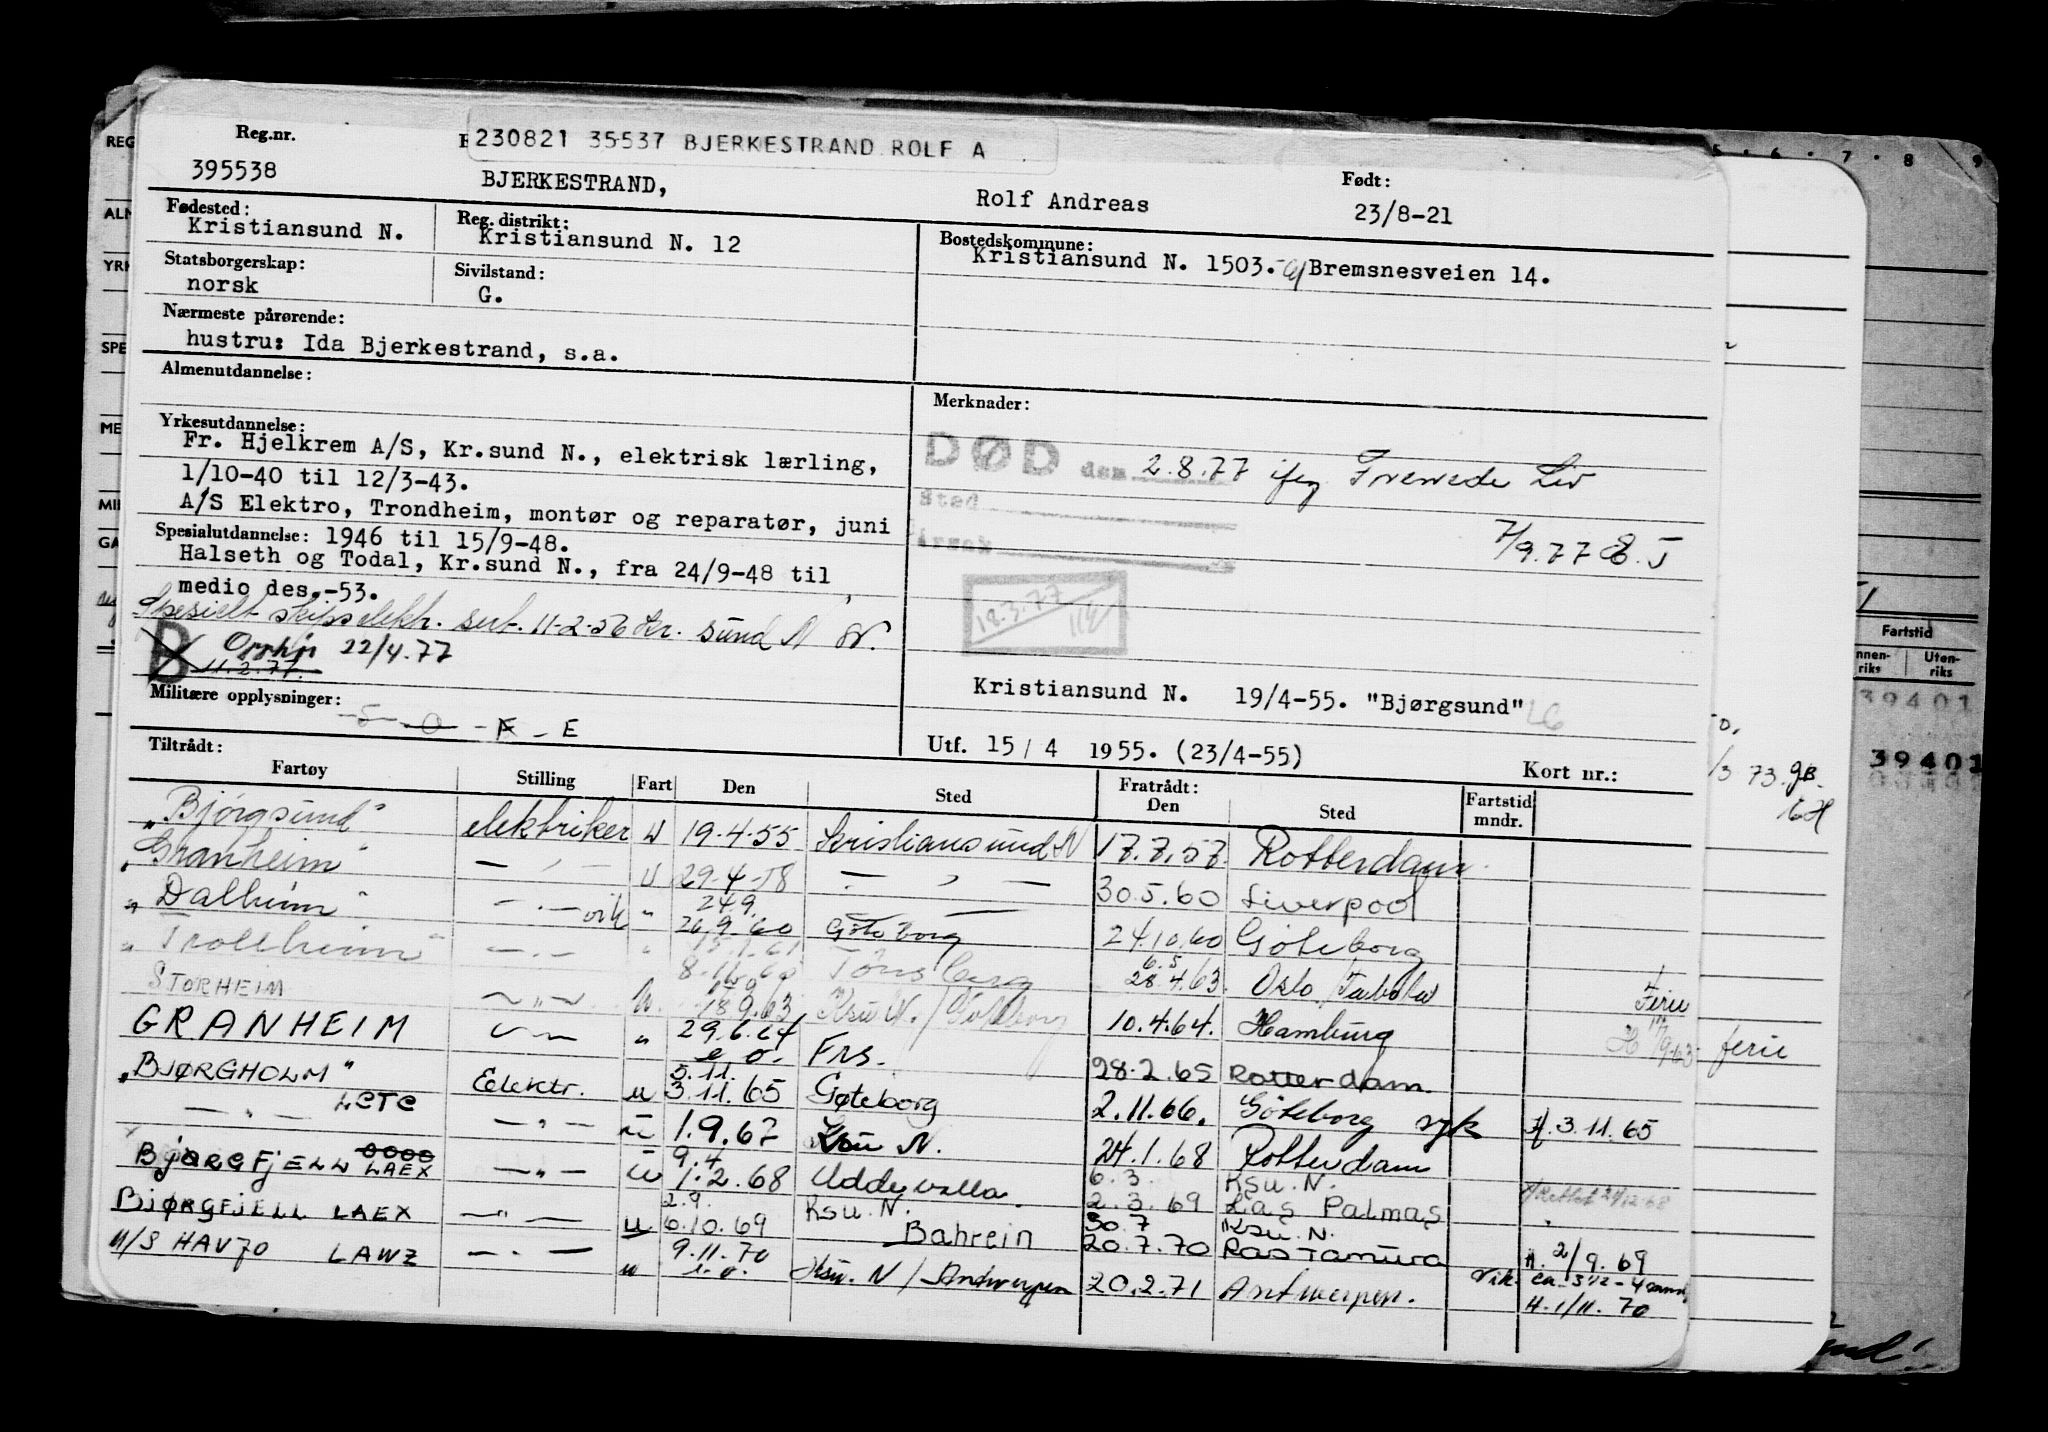 Reg.nr.
230821 35537 BJERKESTRAND ROLF A
395538 BJERKESTRAND, Rolf Andreas Født: 23/8-21
Fødested: Kristiansund N.
Reg. distrikt: Kristiansund N. 12
Bostedskommune: Kristiansund N. 1503. Bremsnesveien 14.
Statsborgerskap: norsk
Sivilstand: G.
Nærmeste pårørende:
hustru: Ida Bjerkestrand, s.a.
Almenutdannelse:
Merknader:
Yrkesutdannelse:
Fr. Hjelkrem A/S, Kr.sund N., elektrisk lærling,
1/10-40 til 12/3-43.
A/S Elektro, Trondheim, montør og reparatør, juni
Spesialutdannelse: 1946 til 15/9-48.
Halseth og Todal, Kr.sund N., fra 24/9-48 til
medio des.-53.
11-2-56 Kr. sund N
B 22/4.77
11.2.77.
DØD den 2.8.77
Sted
Årsak
7/9.77
12.3.77
Militære opplysninger:
E
Kristiansund N. 19/4-55. "Bjørgsund"
Utf. 15/4 1955. (23/4-55) Kort nr.:
Tiltrådt: Fratrådt:
Fartøy Stilling Fart Den Sted Den Sted Fartstid mndr.
"Bjørgsund" elektriker u 19.4.55 Kristiansund N 17.7.57 Rotterdam
"Granheim" — " — u 29.4.58 — " — 30.5.60 Liverpool
"Dalheim" — " — vik " 24.9. 26.9.60 Göteborg 24.10.60 Göteborg
"Trollheim" — " — " Tønsberg 6.5 28.4.63. Oslo Ferie
STORHEIM — " — u. 18.9.63 Ksu N. / Göteborg 10.4.64. Hamburg 9.63 ferie
GRANHEIM — " — " 29.6.64 e.o. 28.2.65 Rotterdam.
"BJØRGHOLM" Elektr. u 5.11. 3.11.65 Gøteborg 2.11.66. Göteborg syk 3.11.65
— " — LCTC — " — u 1.9.67 Ksu N. 24.1.68 Rotterdam
BJØRGFJELL LAEX — " — u 9.4 1.2.68 Uddevalla 6.3. 2.3.69 Ksu. N. Las Palmas
BJØRGFJELL LAEX — " — u 2.9. 6.10.69 Ksu. N. Bahrein 30.7 20.7.70 Ksu. N. Ras Tanura H. 2/9.69
M/S HAV70 LAWZ — " — u 9.11.70 Ksu. N / Antwerpen 20.2.71 Antwerpen. Vik.
H. 1/11.70
5 · 6 · 7 · 8 9
Fartstid
Uten-
riks
39401
39401
73.